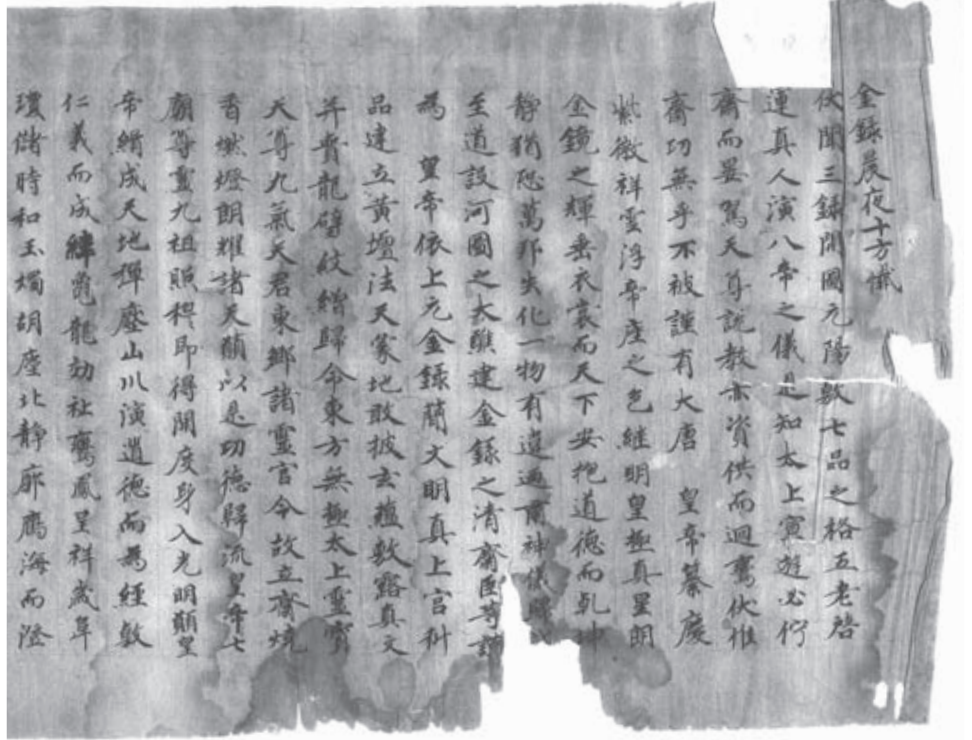 金錄晨夜十方懺
伏聞三錄開圖元陽敷七品之格五老啓
運真人演八帝之儀是知太上寘遊必佇
齋而曇駕天尊說教亦資供而迴鸞伏惟
齋功無乎不被謹有大唐 皇帝纂慶
紫微祥雲浮帝座之色継明皇極真星明
金鏡之輝垂衣裳而天下安抱道德而乹坤
靜猶恐萬邦失化一物有違迺
至道設河圖之大醮建金錄之清齋臣等謹
為 皇帝依上元金錄蕳文明真上宮科
品建立黃壇法天象地敢披玄蘊敷露真文
并賫龍璧紋繒歸命東方無極太上靈寶
天尊九氣天君東鄉諸靈官今故立齋燒
香燃燈朗耀諸天蕳以是功德歸流皇帝七
廟尊靈九祖照穆即得開度身入光明願皇
帝緝成天地彈壓山川演道德而為經敦
仁義而成緯龜龍効社鸞鳳呈祥歲阜
瓊儲時和玉燭胡塵北靜廓鷹海而澄